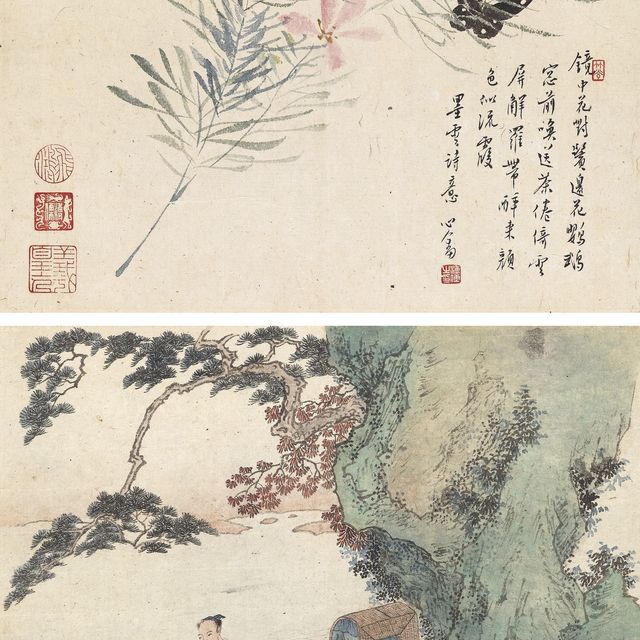 鏡中花對鬢邊花鸚鵡
窓前喚送茶倦倚雲
屏解羅帶醉来顏
色似流霞
墨雲詩意 心畬